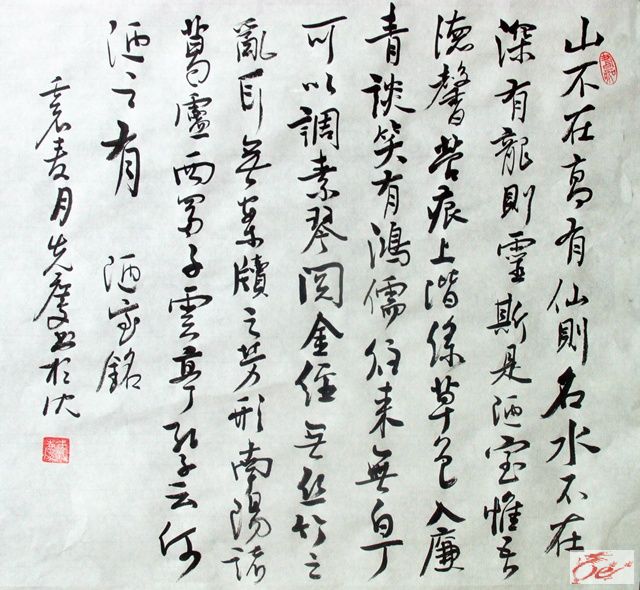 山不在高有仙則名水不在
深有龍則靈斯是陋室惟吾
德馨苔痕上階綠草色入廉
青談笑有鴻儒往来無白丁
可以調素琴閱金經無絲竹之
亂耳無案牘之勞形南陽諸
葛廬西蜀子雲亭孔子云何
陋之有 陋室銘
壬辰春月先慶書於沈